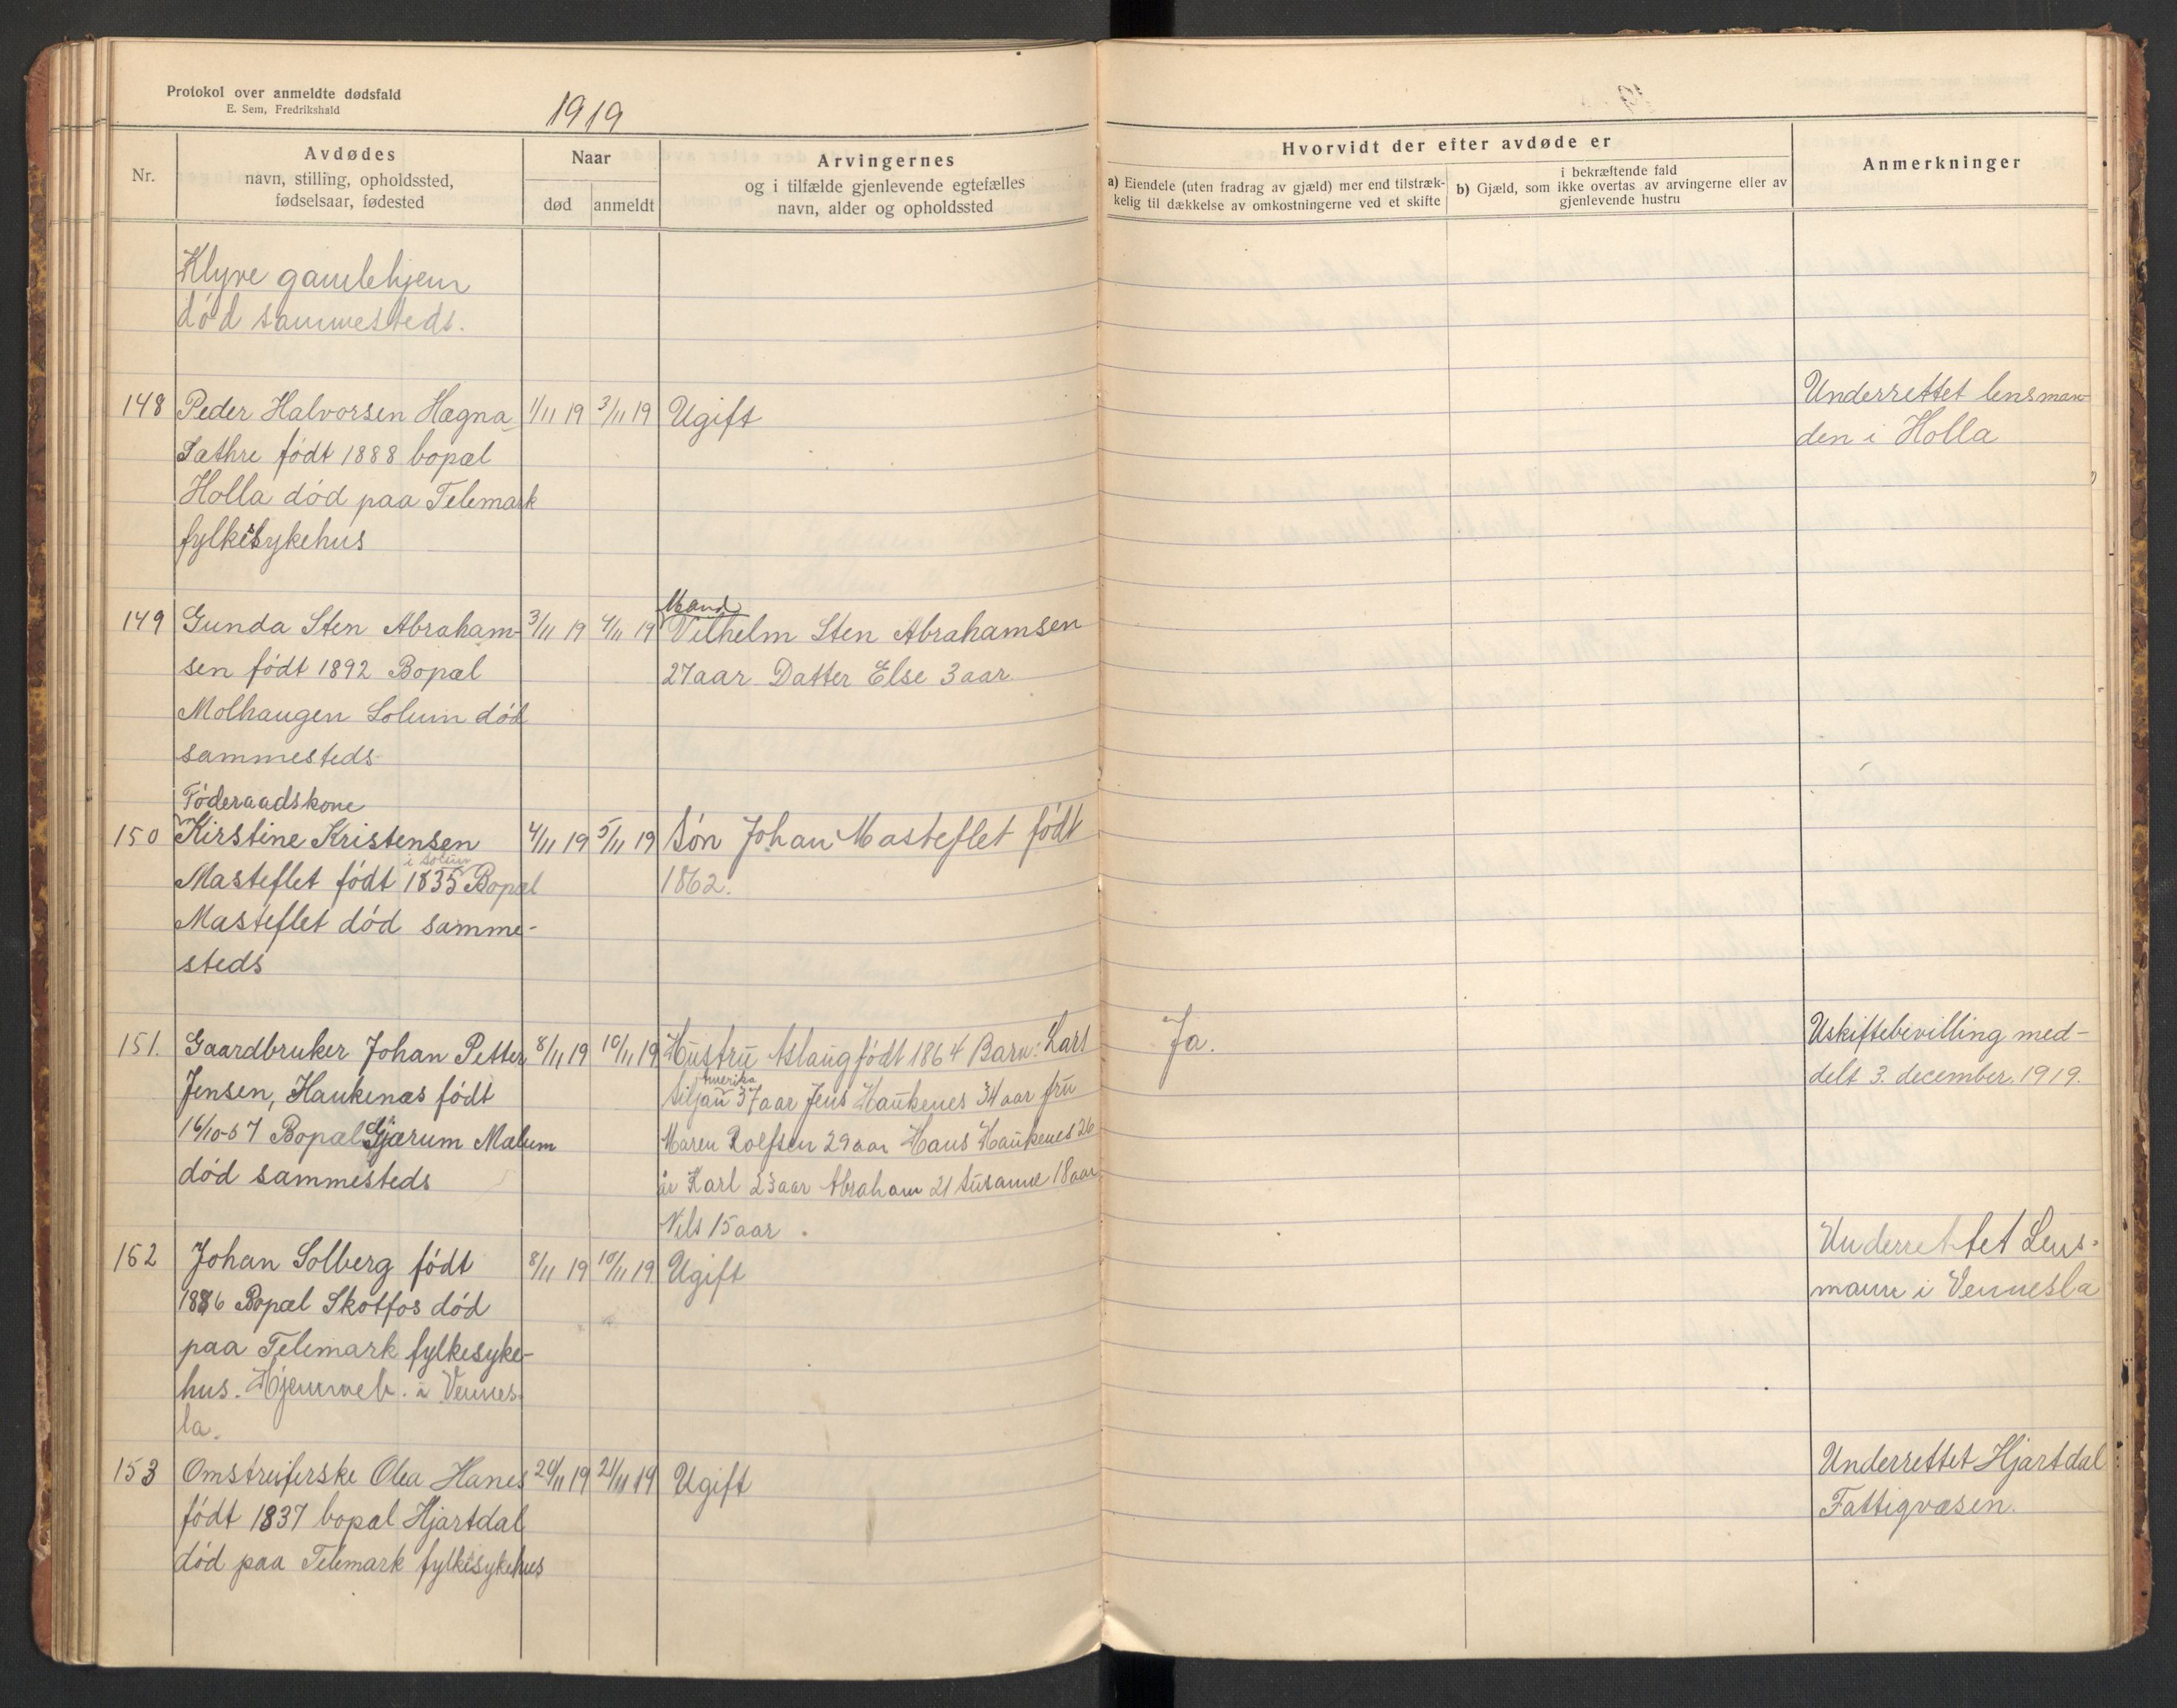 Protokol over anmeldte dødsfald
E. Sem, Fredrikshald
1919
Nr.
Avdødes
navn, stilling, opholdssted,
fødselsaar, fødested
Naar
død
anmeldt
Arvingernes
og i tilfælde gjenlevende egtefælles
navn, alder og opholdssted
Hvorvidt der efter avdøde er
a) Eiendele (uten fradrag av gjæld) mer end tilstræk-
kelig til dækkelse av omkostningerne ved et skifte
i bekræftende fald
b) Gjæld, som ikke overtas av arvingerne eller av
gjenlevende hustru
Anmerkninger
Klyve gamlehjem
død sammesteds.
148 Peder Halvorsen Hægna 1/11 19 3/11 19 Ugift
Sathre født 1888 bopæl
Holla død paa Telemark
fylkessykehus
Underrettet lensman-
den i Holla
149 Gunda Sten Abraham- 3/11 19 4/11 19
sen født 1892 Bopæl
Molhaugen Solum død
sammesteds
Mand
Vilhelm Sten Abrahamsen
27 aar Datter Else 3 aar
Føderaadskone
150 Kirstine Kristensen 4/11 19 5/11 19
i Solum
Masteflet født 1835 Bopæl
Masteflet død samme-
steds
Søn Johan Masteflet født
1862.
151. Gaardbruker Johan Petter 8/11 19 10/11 19
Jensen, Haukenæs født
16/10-57 Bopæl Gjærum Mælum
død sammesteds
Hustru Aslaug født 1864 Barn: Lars
Amerika
Siljan 37 aar Jens Haukenes 34 aar fru
Maren Rolfsen 29 aar Hans Haukenes 26
år Karl 23 aar Abraham 21 Susanne 18 aar
Nils 15 aar.
Ja.
Uskiftebevilling med-
delt 3. december. 1919.
152 Johan Solberg født 8/11 19 10/11 19 Ugift
1886 Bopæl Skotfos død
paa Telemark fylkesyke-
hus. Hjemveb. i Vennes-
la.
Underrettet Lens-
mann i Vennesla
153 Omstreiferske Olea Hanes 20/11 19 21/11 19 Ugift
født 1837 bopæl Hjartdal
død paa Telemark fylkesykehus
Underrettet Hjartdal
Fattigvæsen.